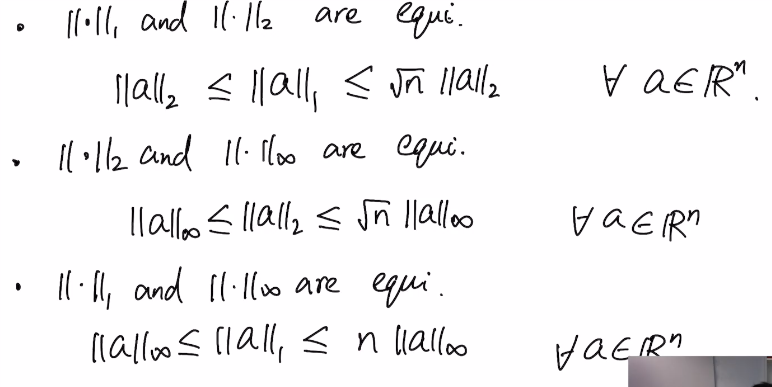 • ||·||₁ and ||·||₂ are equi.
||a||₂ ≤ ||a||₁ ≤ √n ||a||₂ ∀ a ∈ ℝⁿ.
• ||·||₂ and ||·||∞ are equi.
||a||∞ ≤ ||a||₂ ≤ √n ||a||∞ ∀ a ∈ ℝⁿ
• ||·||₁ and ||·||∞ are equi.
||a||∞ ≤ ||a||₁ ≤ n ||a||∞ ∀ a ∈ ℝⁿ